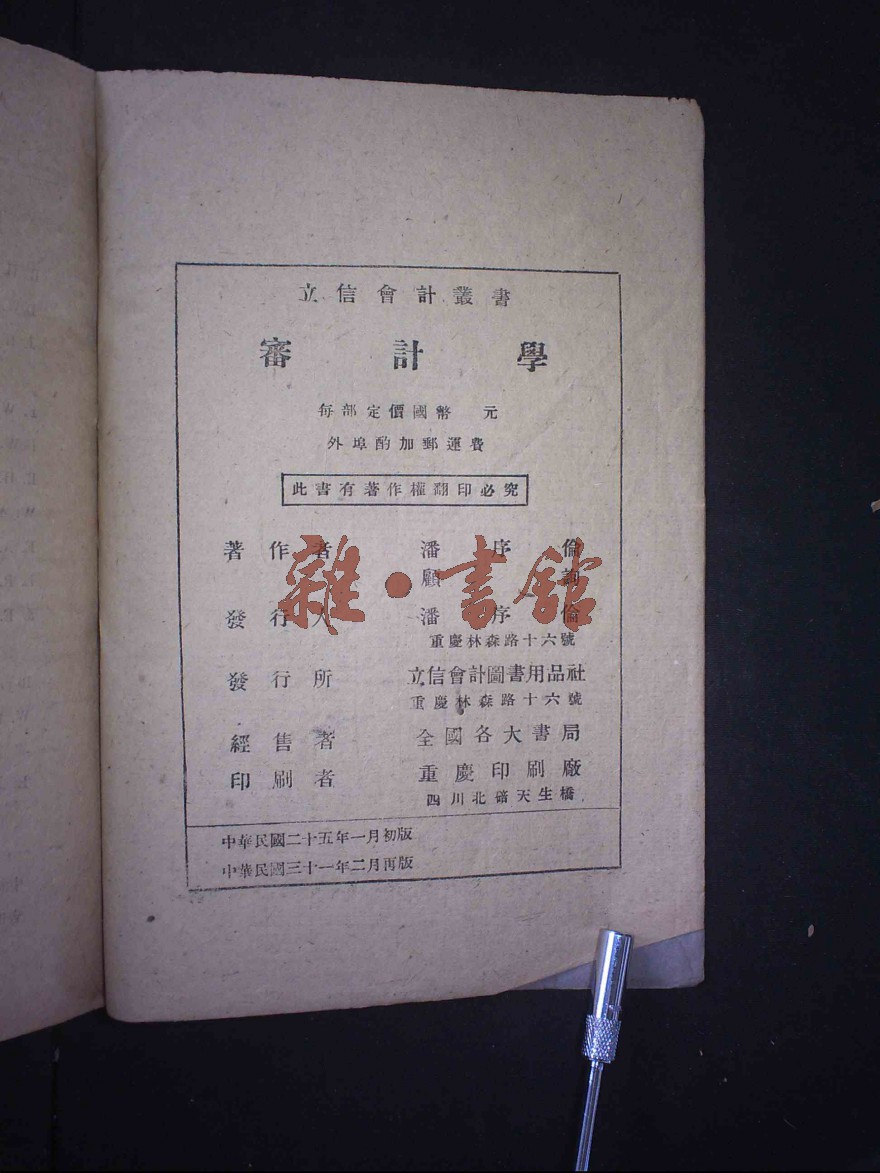 立信會計叢書
審計學
每部定價國幣 元
外埠酌加郵運費
此書有著作權翻印必究
著作者 潘序倫
顧詢
發行人 潘序倫
重慶林森路十六號
發行所 立信會計圖書用品社
重慶林森路十六號
經售者 全國各大書局
印刷者 重慶印刷廠
四川北碚天生橋
中華民國二十五年一月初版
中華民國三十一年二月再版
雜·書館